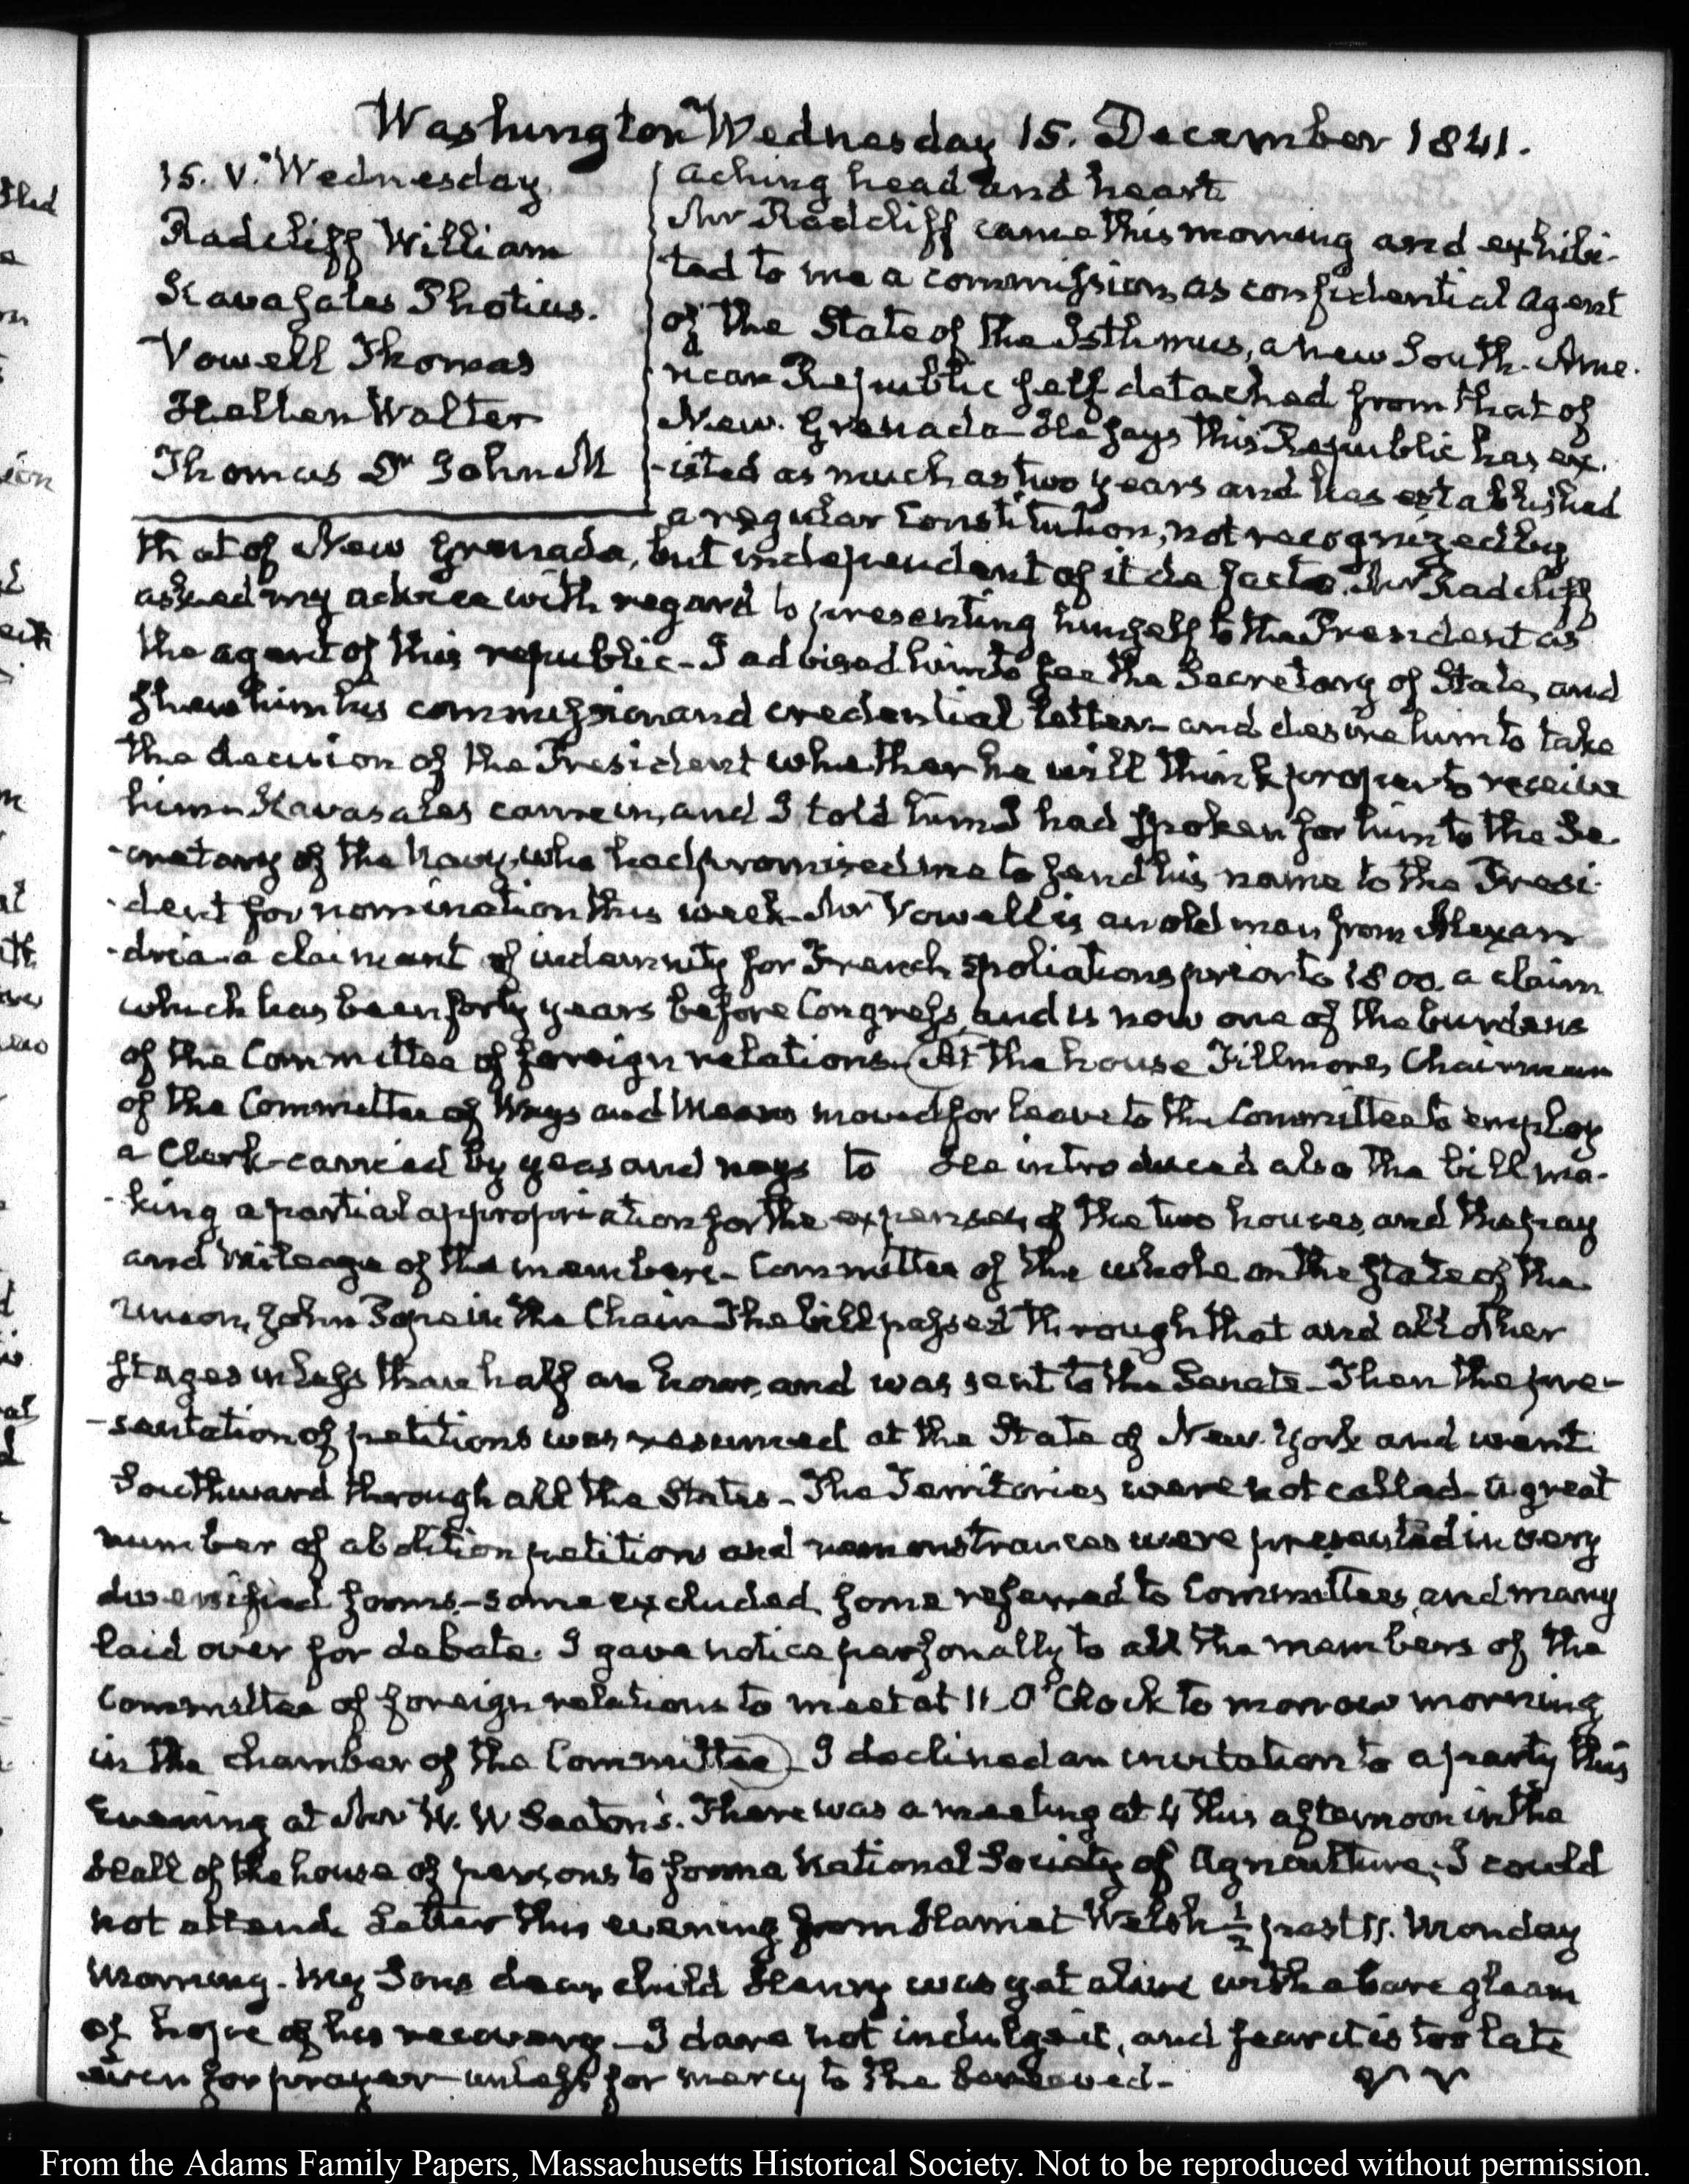 Washington Wednesday 15. December 1841.
15. V. Wednesday
Radcliff William
Kavasales Photius.
Vowell Thomas
Hellen Walter
Thomas Dr John M
aching head and heart
Mr Radcliff came this morning and exhibi-
ted to me a commission, as confidential Agent
of the State of the Isthmus, a new South-Ame-
rican Republic self detached from that of
New-Grenada—He says this Republic has ex-
-isted as much as two years and has established
a regular Constitution, not recognized by
that of New Grenada, but independent of it de facto. Mr Radcliff
asked my advice with regard to presenting himself to the President as
the agent of this republic—I advised him to see the Secretary of State, and
shew him his commission and credential letter—and desire him to take
the decision of the President whether he will think proper to receive
him—Kavasales came in, and I told him I had spoken for him to the Se-
-cretary of the Navy, who had promised me to send his name to the Presi-
-dent for nomination this week—Mr Vowell is an old man from Alexan-
-dria—a claimant of indemnity for French spoliations prior to 1800. a claim
which has been forty years before Congress, and is now one of the burdens
of the Committee of foreign relations. (At the house Fillmore, Chairman
of the Committee of Ways and Means moved for leave to the Committee to employ
a Clerk—carried by yeas and nays to He introduced also the bill ma-
-king a partial appropriation for the expenses of the two houses, and the pay
and mileage of the members—Committee of the whole on the state of the
Union, John Pope in the Chair—The bill passed through that and all other
stages in less than half an hour, and was sent to the Senate—Then the pre-
-sentation of petitions was resumed at the State of New-York and went
Southward through all the States—The Territories were not called—a great
number of abolition petitions and remonstrances were presented in very
diversified forms—some excluded, some referred to Committees, and many
laid over for debate. I gave notice personally to all the members of the
Committee of foreign relations to meet at 11. O'Clock to morrow morning
in the chamber of the Committee) I declined an invitation to a party this
Evening at Mr W. W Seaton's. There was a meeting at 4 this afternoon in the
Hall of the house of persons to form a National Society of Agriculture. I could
not attend. Letter this evening from Harriet Welsh ½ past 11. Monday
Morning. My Sons dear child Henry was yet alive with a bare gleam
of hope of his recovery—I dare not indulge it, and fear it is too late
even for prayer unless for mercy to the bereaved—